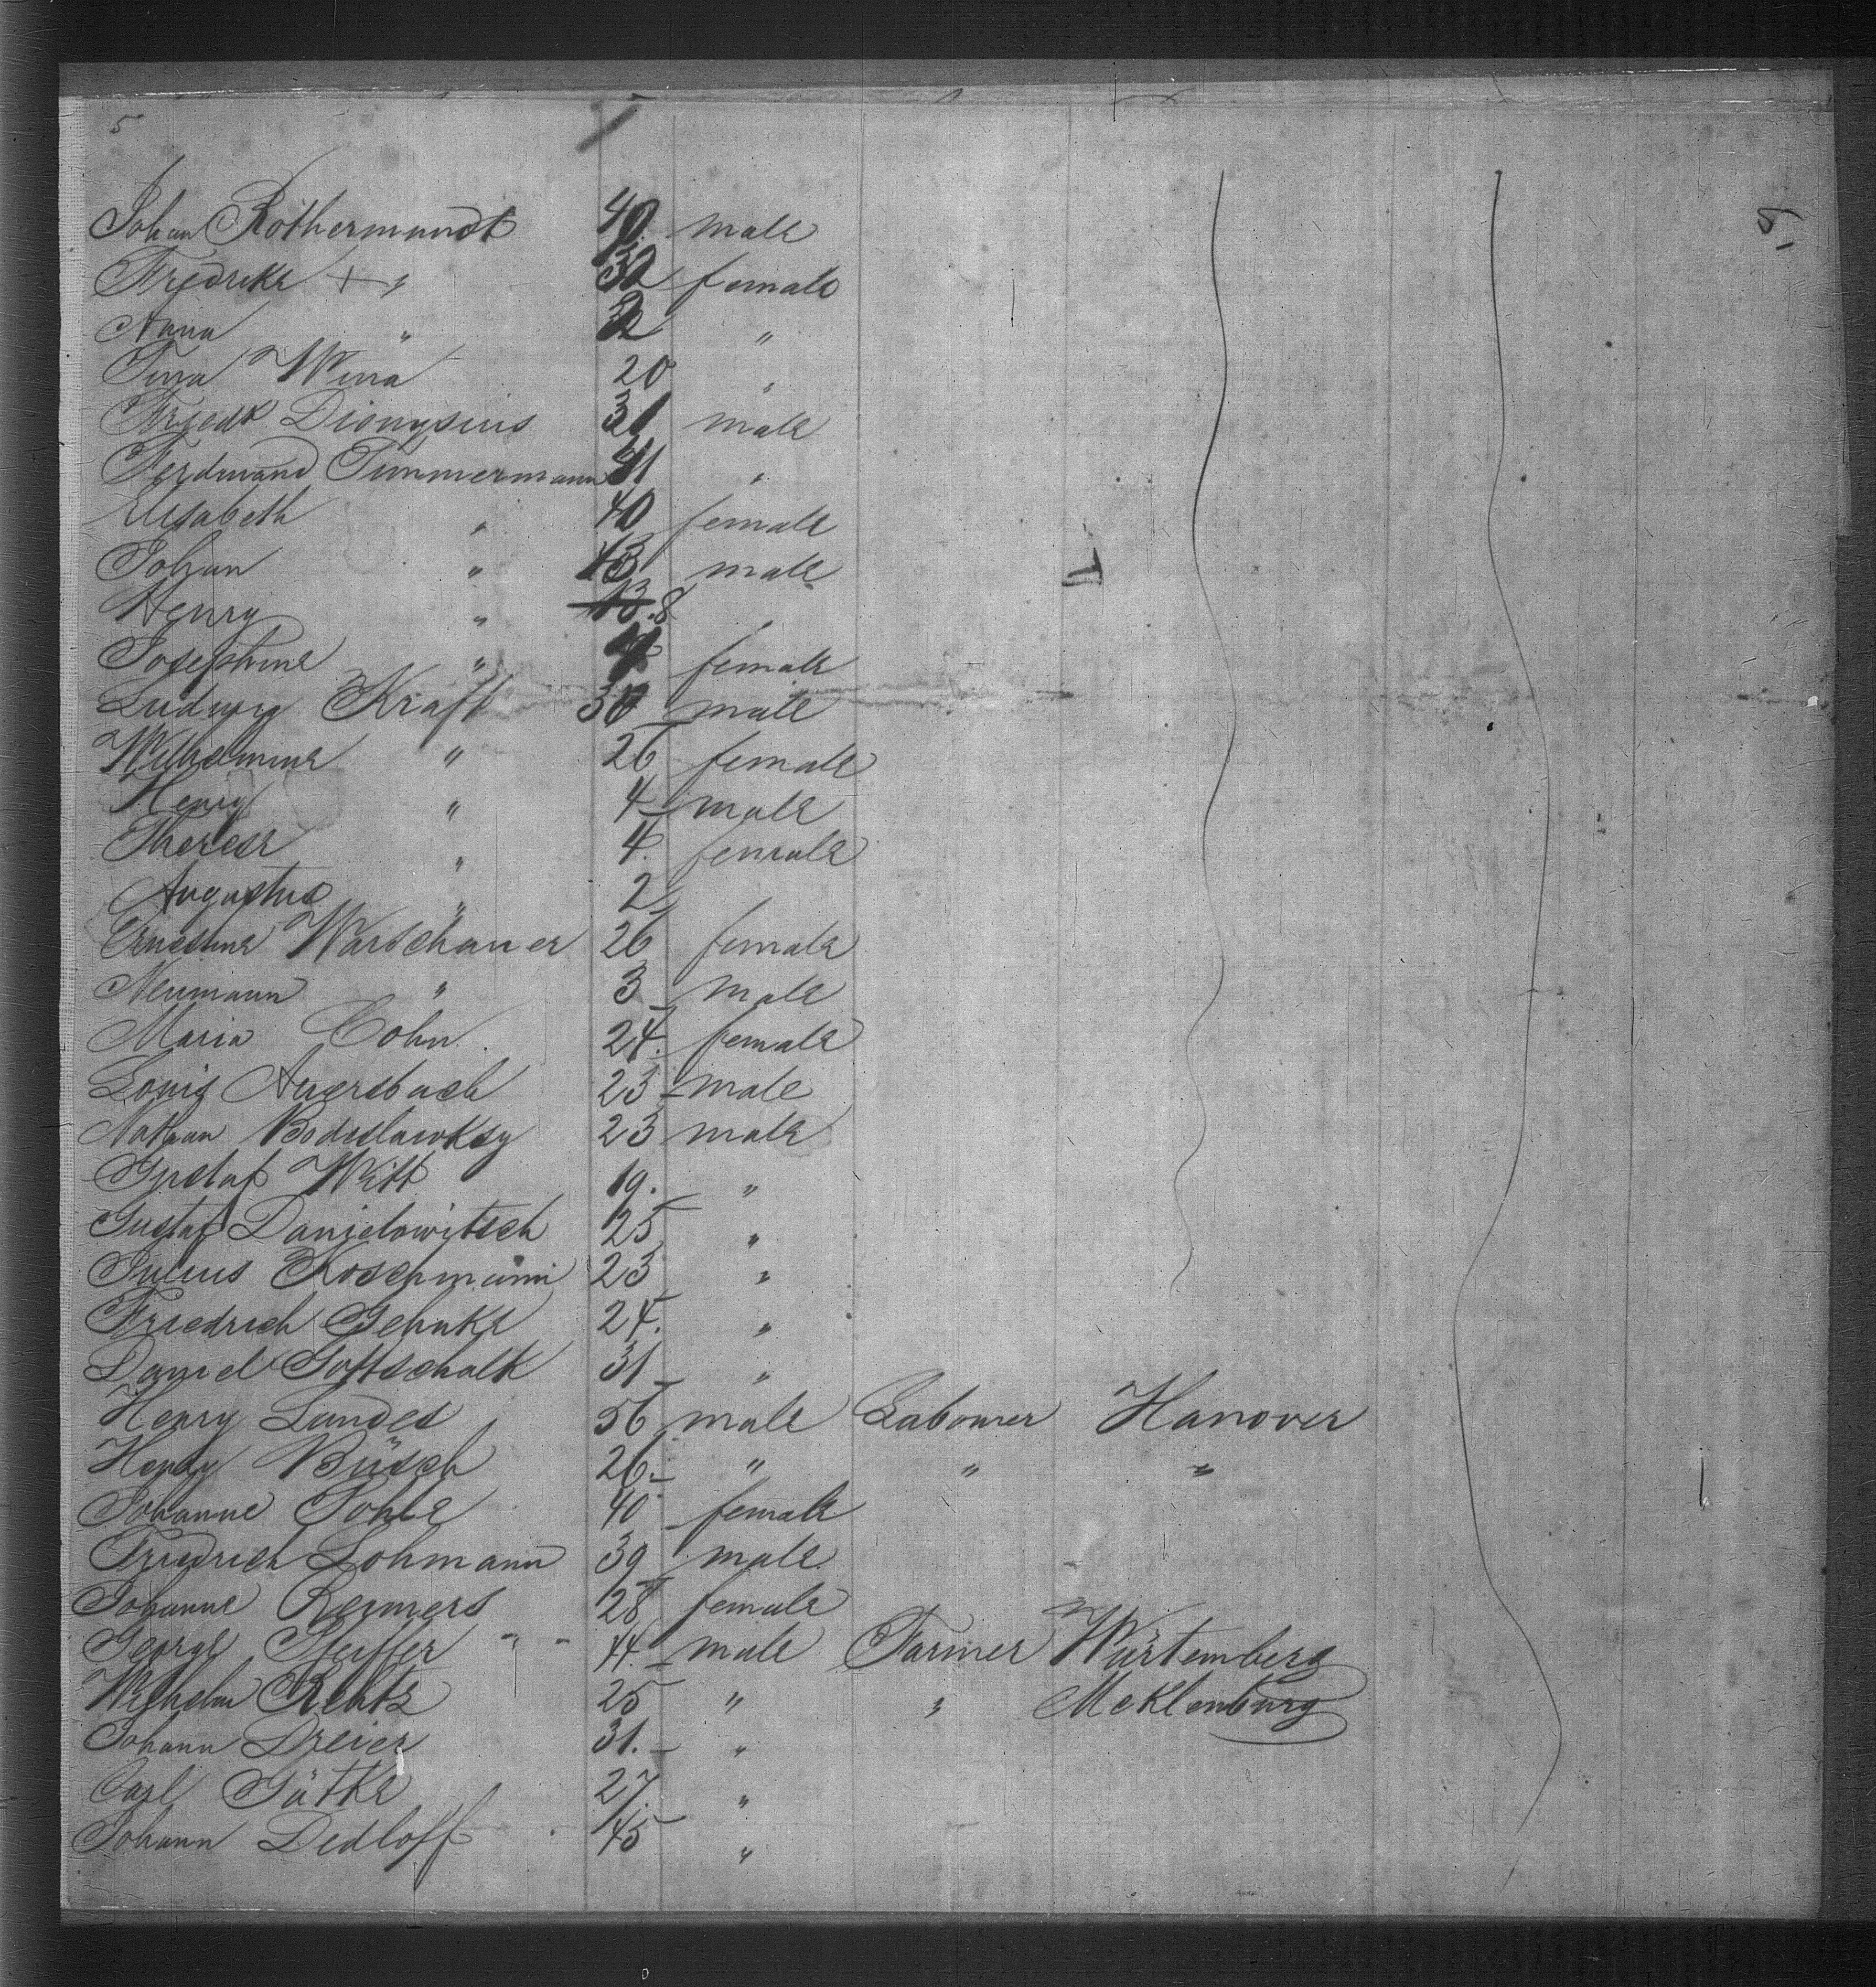 5
Johan Rothermundt 40 male
Fredrike + " 32 female
Anna " "
Tina Wina 20 "
Friedk Dionysius 31 male
Ferdinand Timmermann 41 "
Elisabeth " 40 female
Johan " male
Henry " 13.8 "
Josephine " female
Ludwig Kraft 30 male
Wilhelmine " 26 female
Henry " 4 male
Therese " 4. female
Augustus " 2
Ernestine Warschauer 26 female
Neumann " 3 male
Maria Cohn 24. female
Louis Auersbach 23 male
Nathan Bodeslawksy 23 male
Gustaf Witt 19. "
Gustaf Danielowitsch 25 "
Julius Koschmann 23 "
Friedrich Gehnke 24. "
Daniel Gottschalk 31 "
Henry Landes 56 male Labourer Hanover
Henry Büsch 26. " " "
Johanne Pohle 40 female
Friedrich Lohmann 39 male
Johanne Reimers 28 female
George Pfeiffer " 44. male Farmer Würtemberg
Wilhelm Rehtz 25 " " Meklenburg
Johann Dreier 31. "
Carl Gätke 27. "
Johann Dedloff 45 "